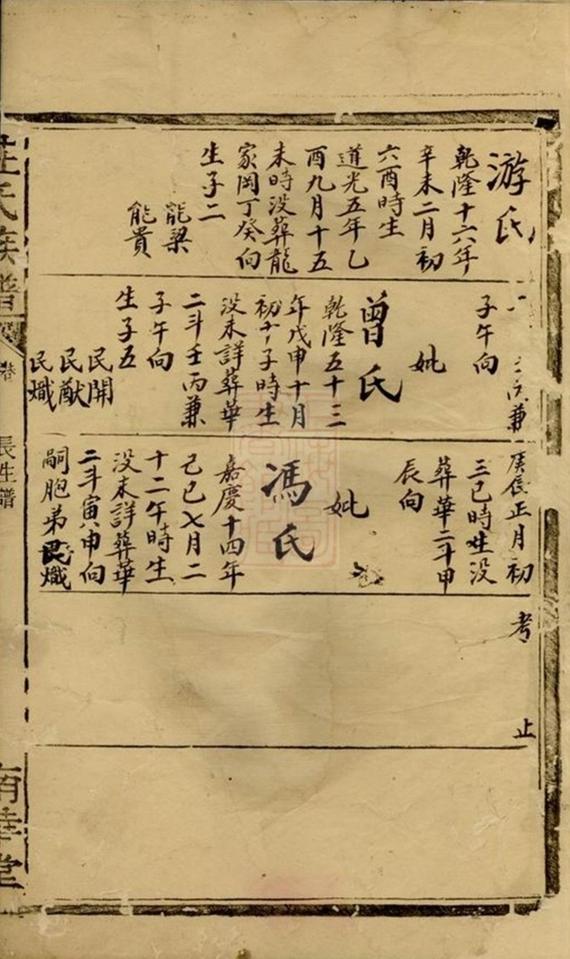 游氏
乾隆十六年
辛未二月初
六酉時生
道光五年乙
酉九月十五
未時没葬龍
家岡丁癸向
生子二
能梁
能貴
兼
子午向
妣
曾氏
乾隆五十三
年戊申十月
初十子時生
没未詳葬華
二斗壬丙兼
子午向
生子五
民開
民猷
民熾
庚辰正月初
三巳時生没
葬華二斗甲
辰向
妣
馮氏
嘉慶十四年
己巳七月二
十二午時生
没未詳葬華
二斗寅申向
嗣胞弟民熾
考
止
氏族譜
卷
長生譜
南華堂